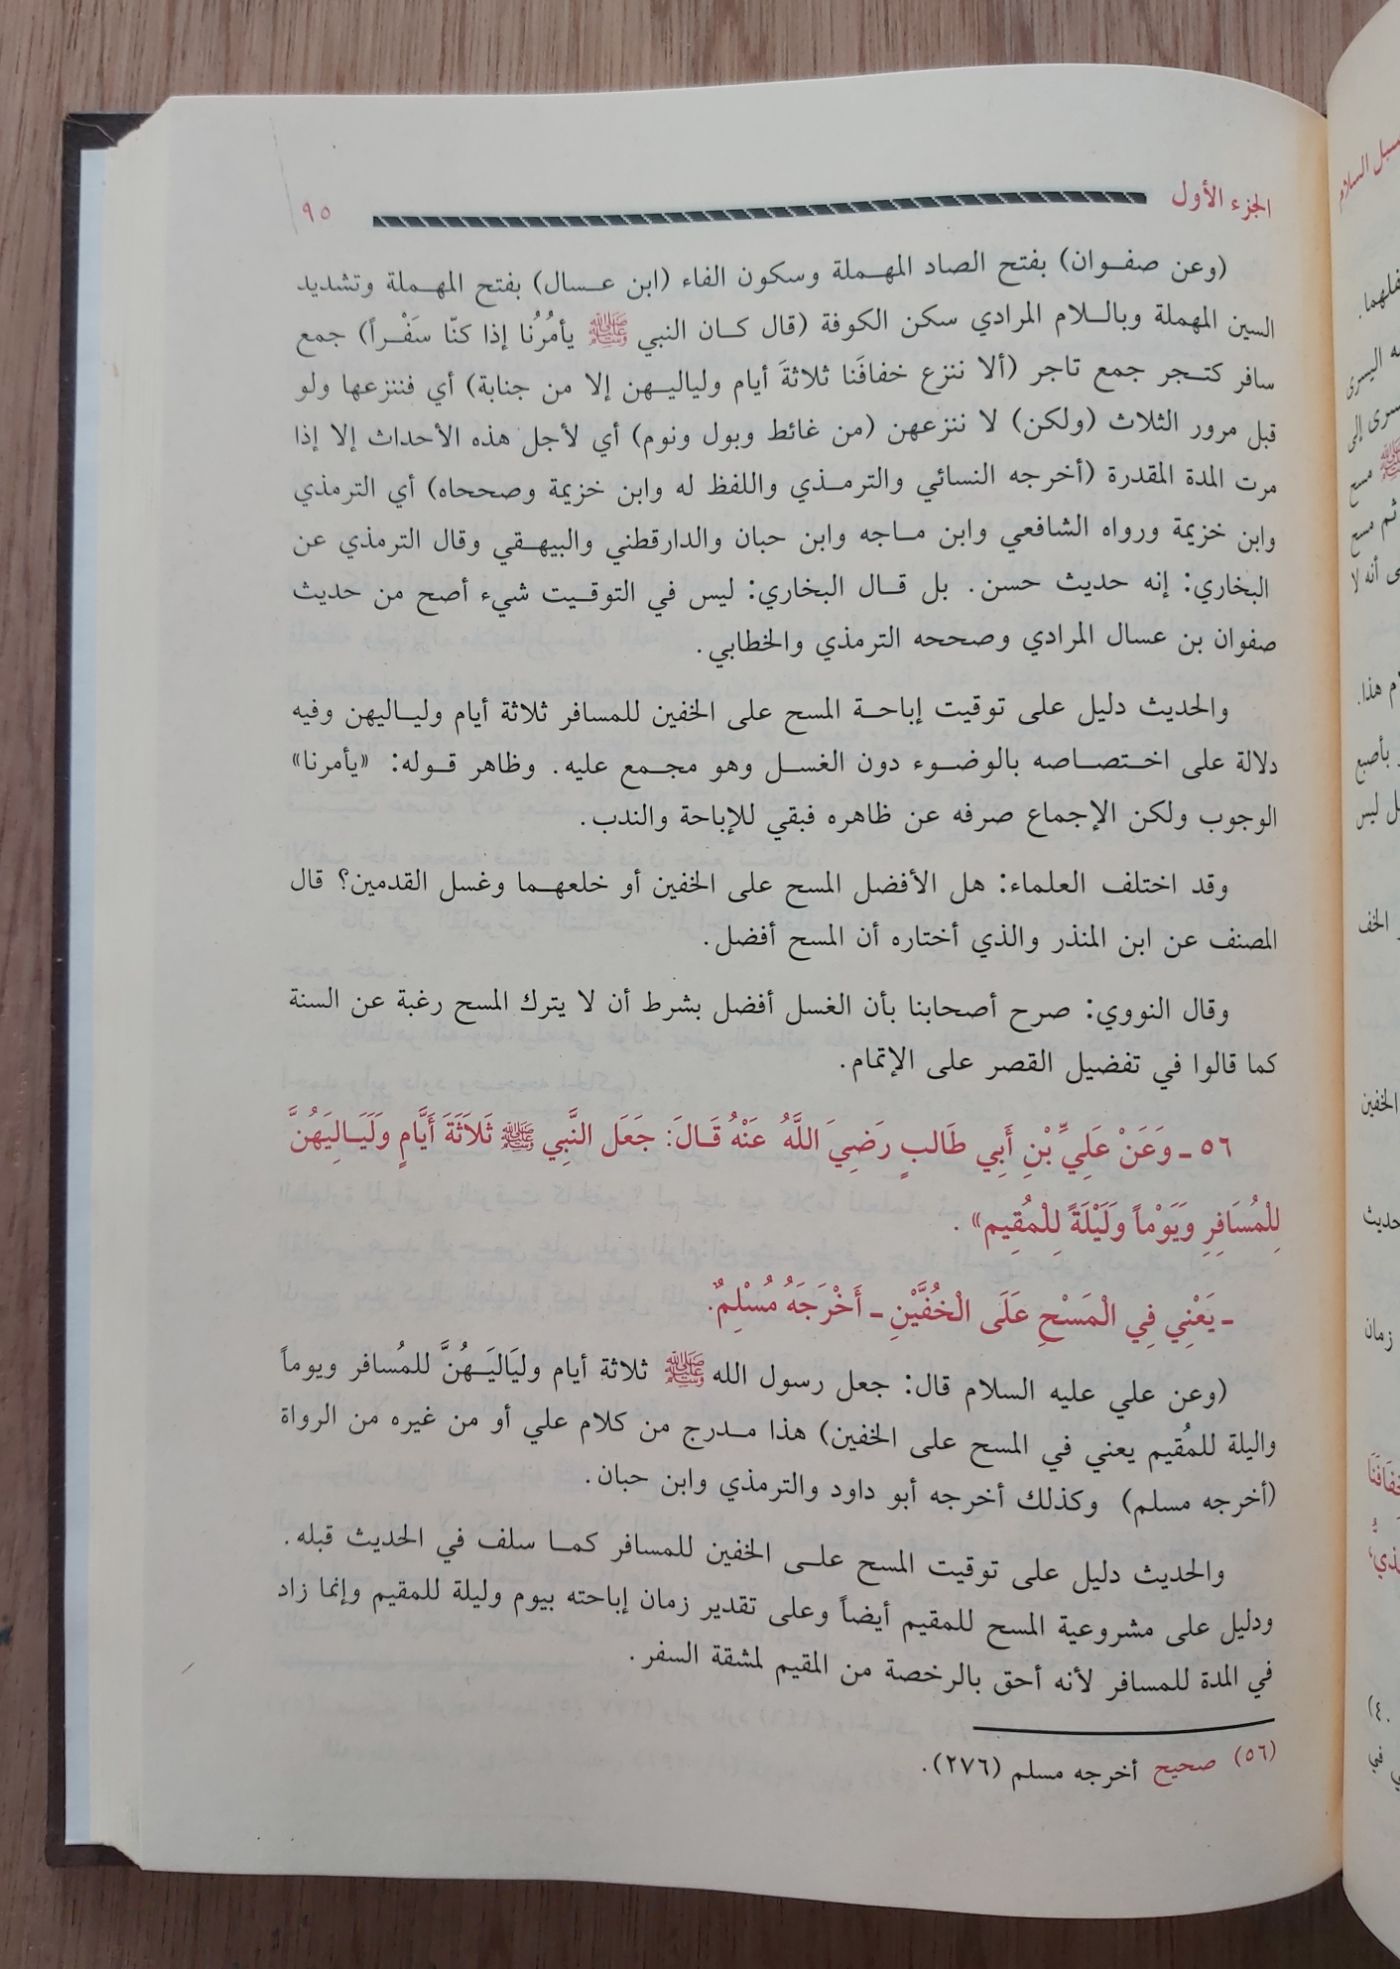 الجزء الأول ٩٥
(وعن صفوان) بفتح الصاد المهملة وسكون الفاء (ابن عسال) بفتح المهملة وتشديد
السين المهملة وباللام المرادي سكن الكوفة (قال كان النبي ﷺ يأمُرُنا إذا كنّا سَفْراً) جمع
سافر كتجر جمع تاجر (ألا ننزع خفافَنا ثلاثةَ أيام ولياليهن إلا من جنابة) أي فننزعها ولو
قبل مرور الثلاث (ولكن) لا ننزعهن (من غائط وبول ونوم) أي لأجل هذه الأحداث إلا إذا
مرت المدة المقدرة (أخرجه النسائي والترمذي واللفظ له وابن خزيمة وصححاه) أي الترمذي
وابن خزيمة ورواه الشافعي وابن ماجه وابن حبان والدارقطني والبيهقي وقال الترمذي عن
البخاري: إنه حديث حسن. بل قال البخاري: ليس في التوقيت شيء أصح من حديث
صفوان بن عسال المرادي وصححه الترمذي والخطابي.
والحديث دليل على توقيت إباحة المسح على الخفين للمسافر ثلاثة أيام ولياليهن وفيه
دلالة على اختصاصه بالوضوء دون الغسل وهو مجمع عليه. وظاهر قوله: «يأمرنا»
الوجوب ولكن الإجماع صرفه عن ظاهره فبقي للإباحة والندب.
وقد اختلف العلماء: هل الأفضل المسح على الخفين أو خلعهما وغسل القدمين؟ قال
المصنف عن ابن المنذر والذي أختاره أن المسح أفضل.
وقال النووي: صرح أصحابنا بأن الغسل أفضل بشرط أن لا يترك المسح رغبة عن السنة
كما قالوا في تفضيل القصر على الإتمام.
٥٦ ـ وَعَنْ عَلِيِّ بْنِ أَبِي طَالبٍ رَضِيَ اللَّهُ عَنْهُ قَالَ: جَعَلَ النَّبِي ﷺ ثَلاَثَةَ أَيَّامٍ وَلَيَالِيَهُنَّ
لِلْمُسَافِرِ وَيَوْماً وَلَيْلَةً لِلْمُقِيم» .
ـ يَعْنِي فِي الْمَسْحِ عَلَى الْخُفَّيْنِ ـ أَخْرَجَهُ مُسْلِمٌ.
(وعن علي عليه السلام قال: جعل رسول الله ﷺ ثلاثة أيام وليَاليَهُنَّ للمُسافر ويوماً
واليلة للمُقيم يعني في المسح على الخفين) هذا مدرج من كلام علي أو من غيره من الرواة
(أخرجه مسلم) وكذلك أخرجه أبو داود والترمذي وابن حبان.
والحديث دليل على توقيت المسح على الخفين للمسافر كما سلف في الحديث قبله.
ودليل على مشروعية المسح للمقيم أيضاً وعلى تقدير زمان إباحته بيوم وليلة للمقيم وإنما زاد
في المدة للمسافر لأنه أحق بالرخصة من المقيم لمشقة السفر.
(٥٦) صحيح أخرجه مسلم (٢٧٦).
سبل السلام
اليسرى
مسح
ثم مسح
أنه لا
هذا.
بأصبع
ليس
الخف
الخفين
حديث
زمان
خفافنا
في